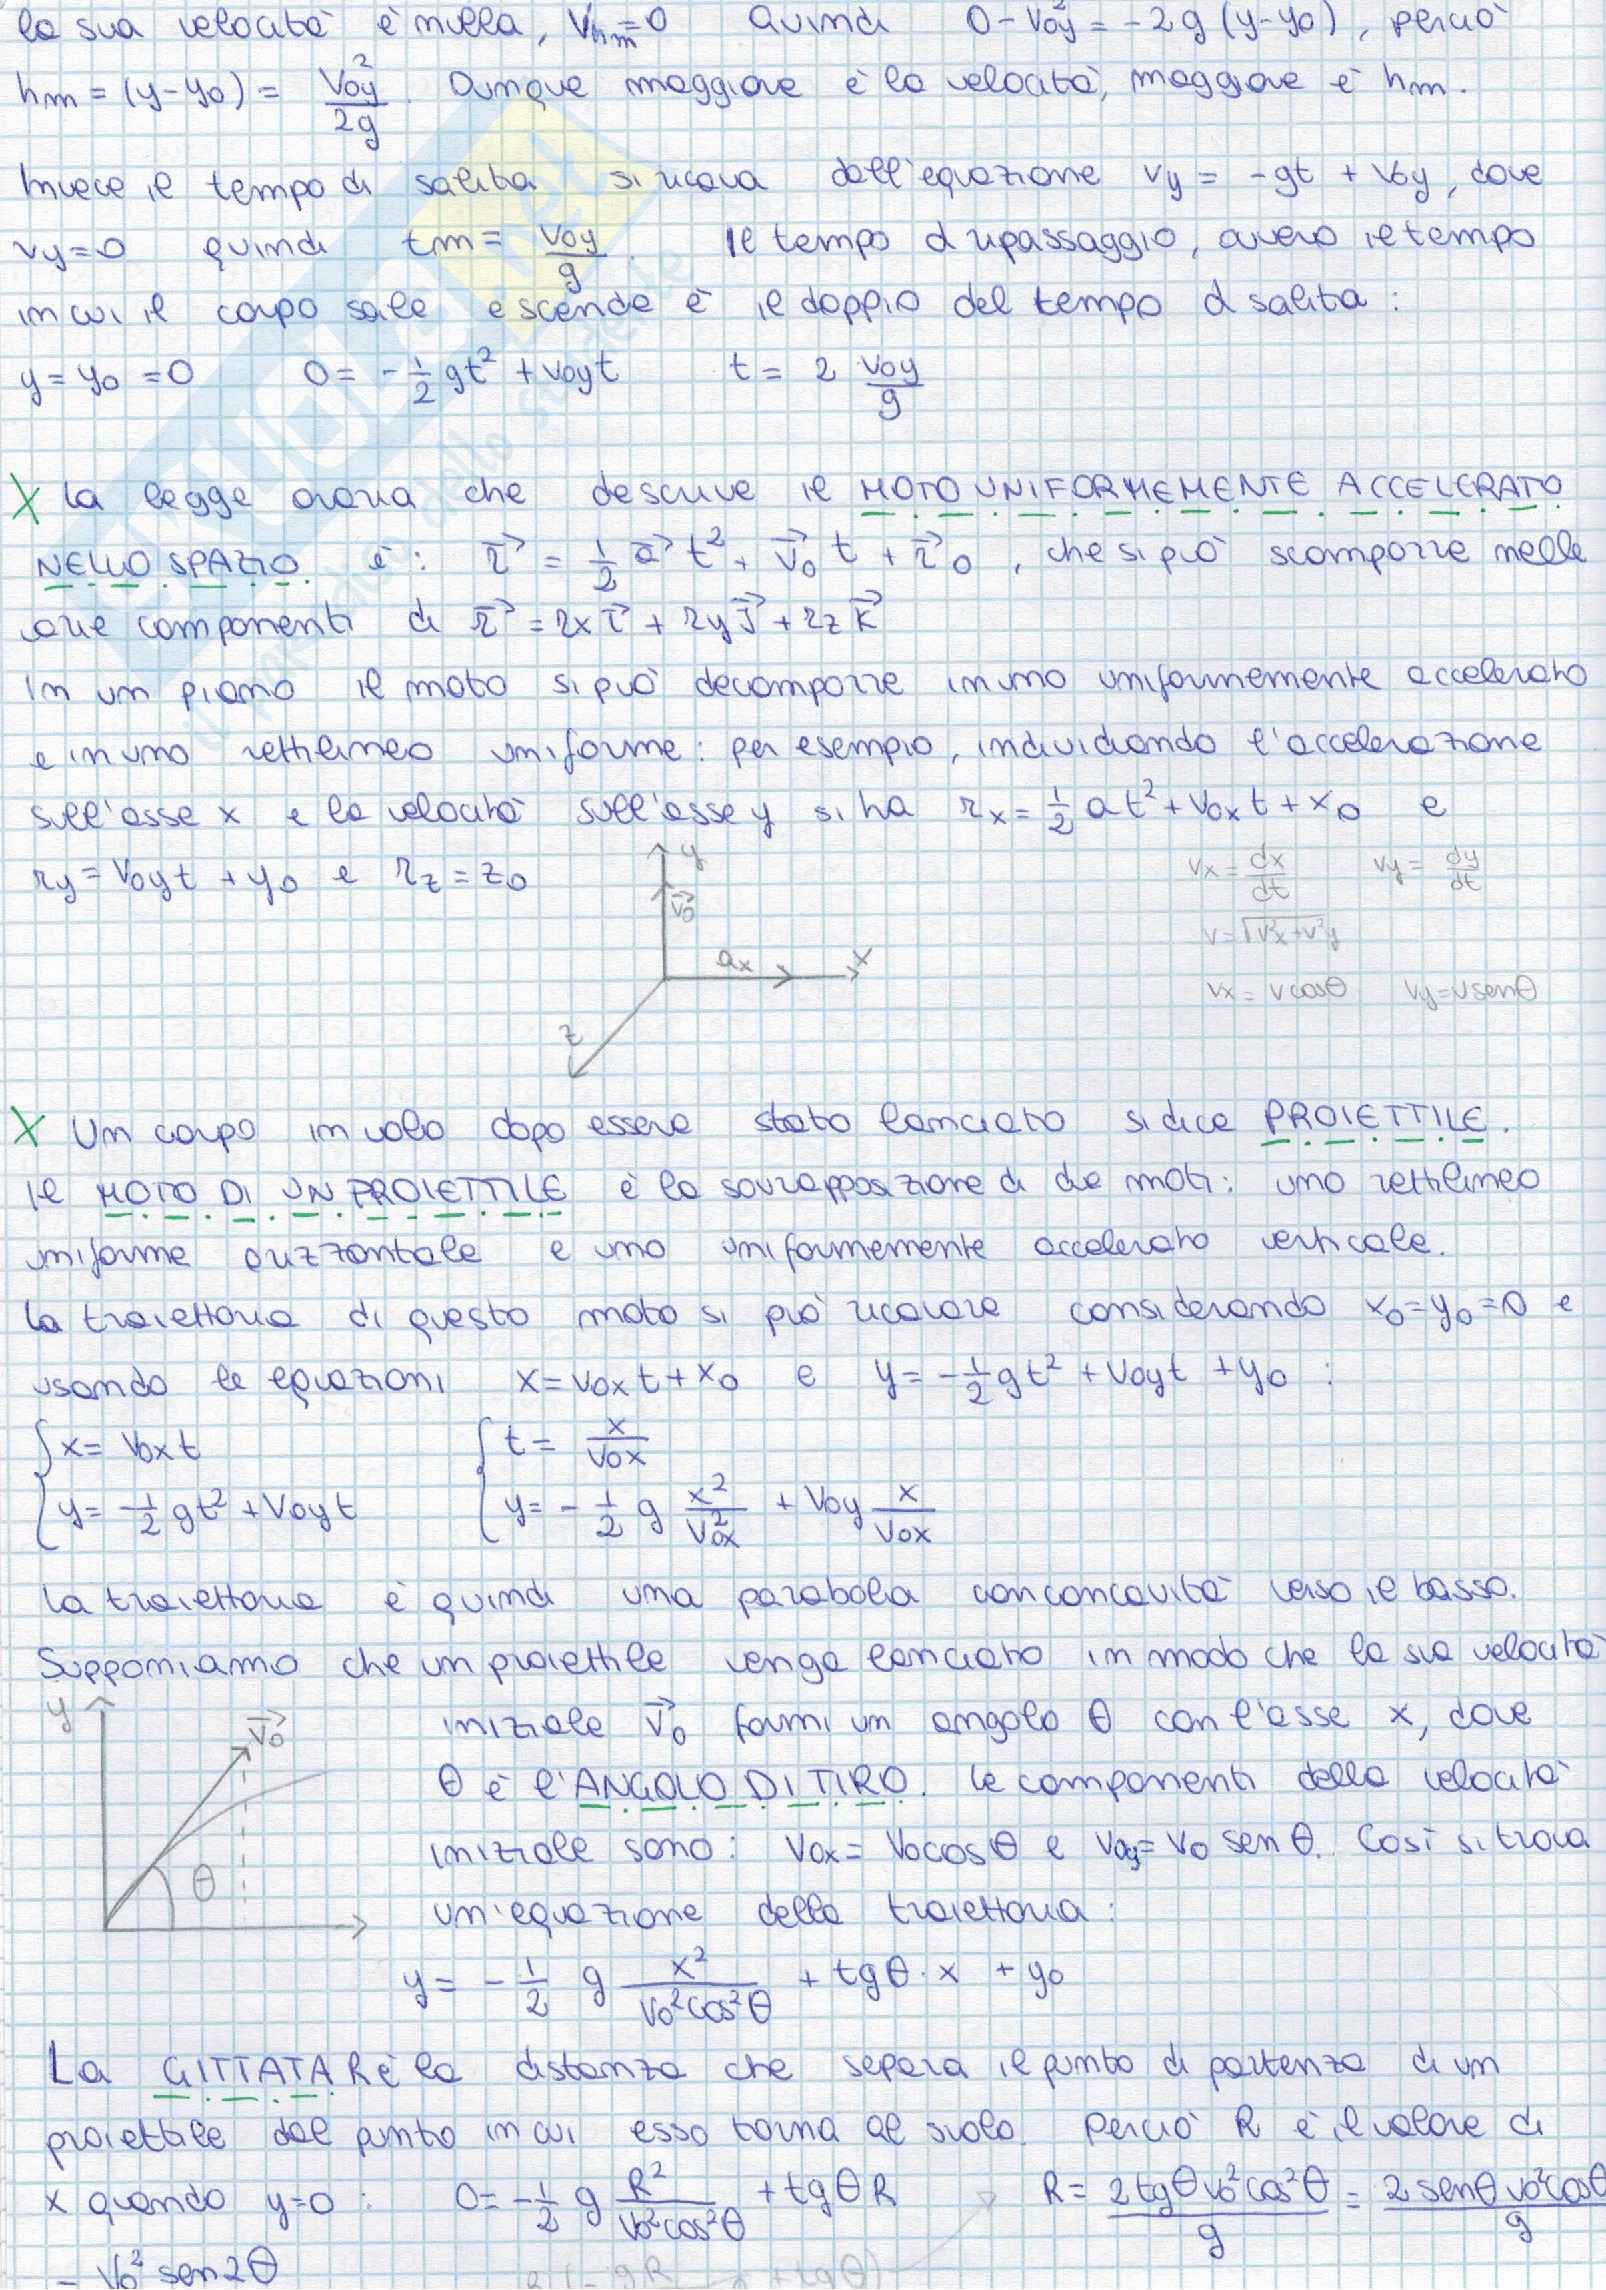 la sua velocità è nulla, Vhm=0 Quindi 0-V0y²=-2g(y-y0), perciò
hm=(y-y0)= V0y²/2g. Dunque maggiore è la velocità, maggiore è hm.
Invece il tempo di salita si ricava dall'equazione vy= -gt + V0y, dove
vy=0 quindi tm= V0y/g. Il tempo di ripassaggio, ovvero il tempo
in cui il corpo sale e scende è il doppio del tempo di salita:
y=y0=0 0=-1/2 gt²+V0yt t= 2 V0y/g
X La legge oraria che descrive il MOTO UNIFORMEMENTE ACCELERATO
NELLO SPAZIO è: r⃗ = 1/2 a⃗ t² + v⃗0 t + r⃗0, che si può scomporre nelle
due componenti di r⃗ = rx i⃗ + ry j⃗ + rz k⃗
In un piano il moto si può decomporre in uno uniformemente accelerato
e in uno rettilineo uniforme: per esempio, individuando l'accelerazione
sull'asse x e la velocità sull'asse y si ha rx=1/2 at²+V0xt+x0 e
ry=V0yt+y0 e rz=z0
y
v⃗0
ax
x
z
vx=dx/dt vy=dy/dt
v=√v²x+v²y
vx=vcosθ vy=vsenθ
X Un corpo in volo dopo essere stato lanciato si dice PROIETTILE.
Il MOTO DI UN PROIETTILE è la sovrapposizione di due moti: uno rettilineo
uniforme orizzontale e uno uniformemente accelerato verticale.
La traiettoria di questo moto si può ricavare considerando x0=y0=0 e
usando le equazioni x=V0xt+x0 e y=-1/2 gt²+V0yt+y0:
{x= V0xt {t= x/V0x
{y=-1/2 gt²+V0yt {y=-1/2 g x²/V0x² + V0y x/V0x
La traiettoria è quindi una parabola con concavità verso il basso.
Supponiamo che un proiettile venga lanciato in modo che la sua velocità
y
v⃗0
θ
iniziale v⃗0 formi un angolo θ con l'asse x, dove
θ è l'ANGOLO DI TIRO. Le componenti della velocità
iniziale sono: V0x=V0cosθ e V0y=V0 senθ. Così si trova
un'equazione della traiettoria:
y= -1/2 g x²/V0²cos²θ + tgθ·x + y0
La GITTATA R è la distanza che separa il punto di partenza di un
proiettile dal punto in cui esso torna al suolo. Perciò R è il valore di
x quando y=0: 0=-1/2 g R²/V0²cos²θ + tgθR R= 2tgθV0²cos²θ/g = 2senθV0²cosθ/g
= V0² sen2θ